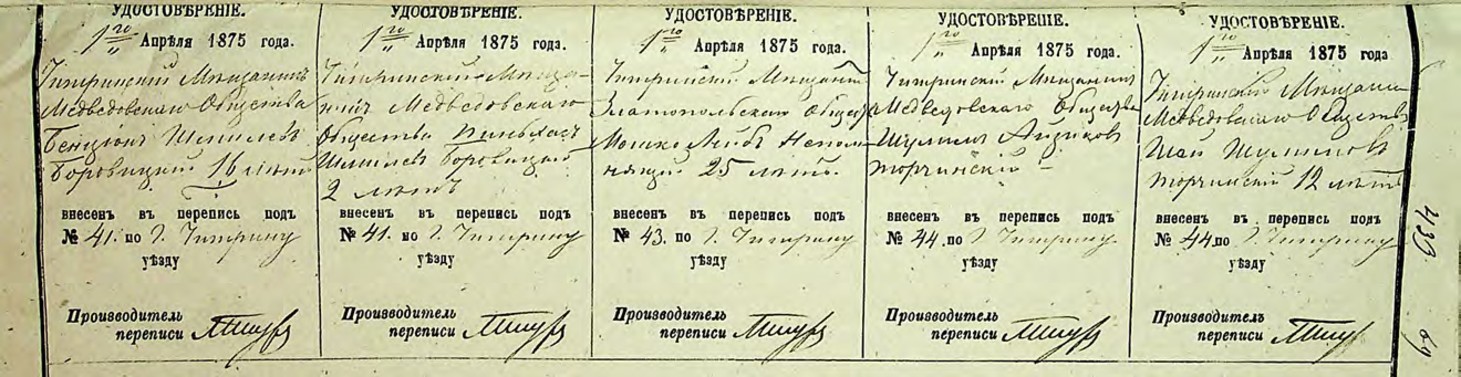 УДОСТОВѢРЕНІЕ.
1го Апрѣля 1875 года.
Чигринскій Мѣщанинъ
Медведовскаго Общества
Бенціонъ Шмилевъ
Боровицкій 16 лѣтъ
внесенъ въ перепись подъ
№ 41. по г. Чигрину
уѣзду
Производитель
переписи
УДОСТОВѢРЕНІЕ.
1го Апрѣля 1875 года.
Чигринскій Мѣща-
нинъ Медведовскаго
Общества Пинькасъ
Шмилевъ Боровицкій
2 лѣтъ
внесенъ въ перепись подъ
№ 41. по г. Чигрину
уѣзду
Производитель
переписи
УДОСТОВѢРЕНІЕ.
1го Апрѣля 1875 года.
Чигринскій Мѣщанинъ
Златопольскаго Общес
Мошко Лейбъ Непом-
нящій 25 лѣтъ.
внесенъ въ перепись подъ
№ 43. по г. Чигрину
уѣзду
Производитель
переписи
УДОСТОВѢРЕНІЕ.
1го Апрѣля 1875 года.
Чигринскій Мѣщанинъ
Медведовскаго Общества
Шулимъ
Торчинскій
внесенъ въ перепись подъ
№ 44. по г. Чигрину
уѣзду
Производитель
переписи
УДОСТОВѢРЕНІЕ.
1го Апрѣля 1875 года
Чигринскій Мѣщанинъ
Медведовскаго Общества
Шулимовъ
Торчинскій 12 лѣтъ
внесенъ въ перепись подъ
№ 44. по г. Чигрину
уѣзду
Производитель
переписи
439
69